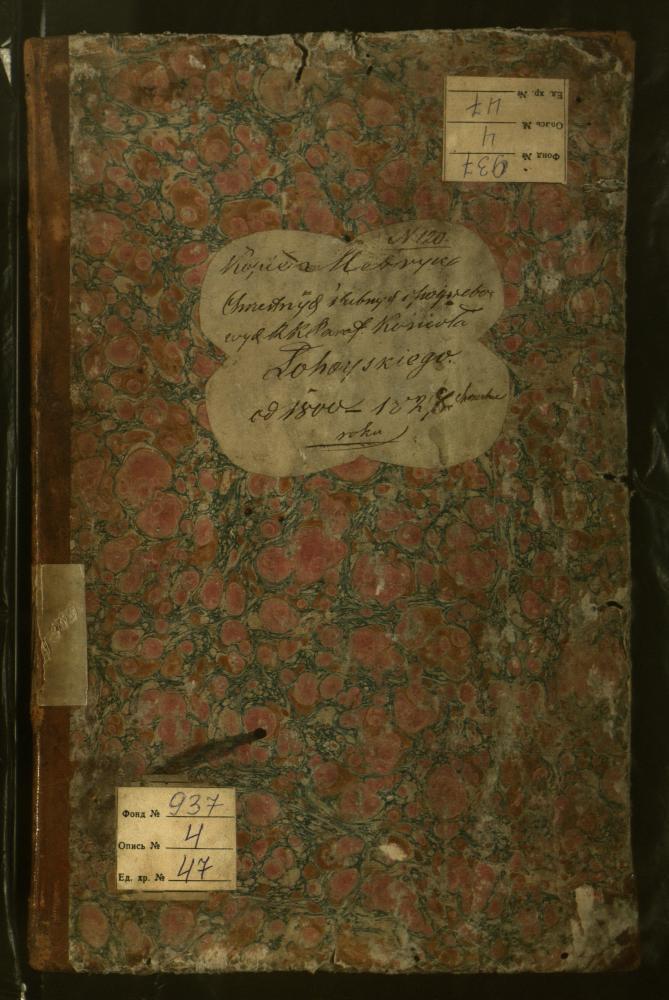 Ед. хр. № 47
Опись № 4
Фонд № 937
N 120.
Kopia Metryce
Chrestnych slubnych i pogrzebo
wych RK Paraf. Kościoła
Łohoyskiego.
od 1800 – 1828
roku
Фонд № 937
Опись № 4
Ед. хр. № 47